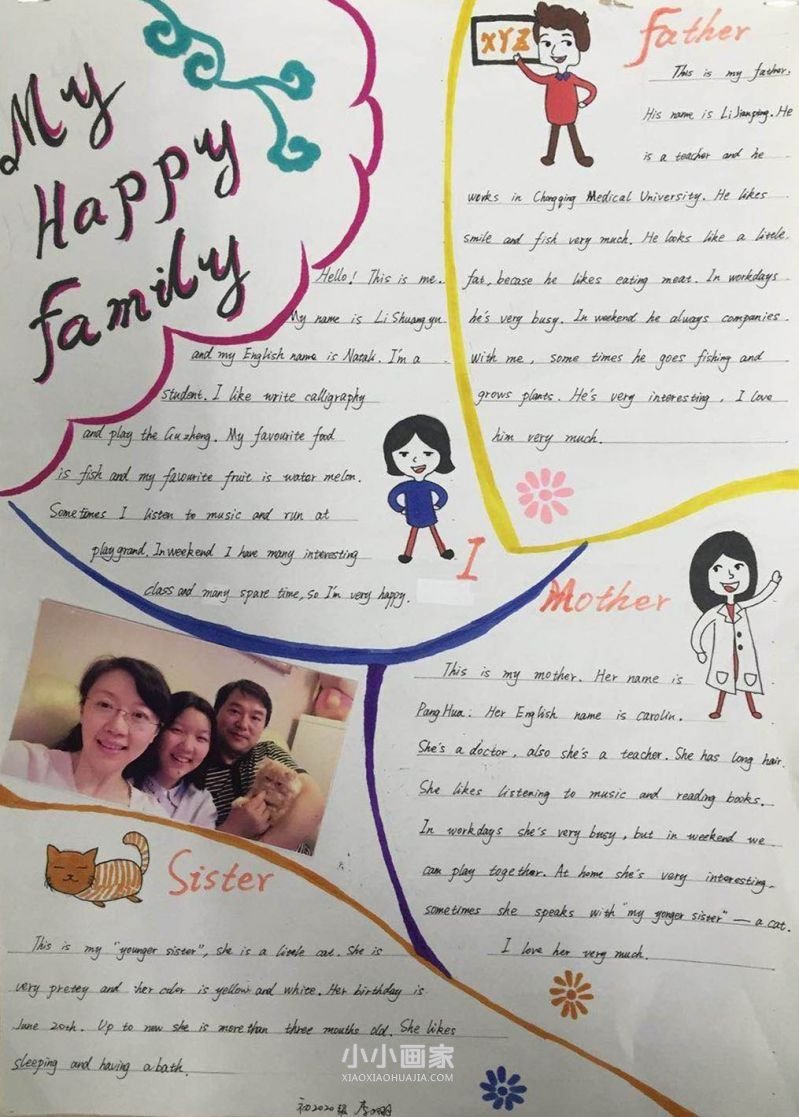 My
Happy
Family
Hello! This is me.
My name is Li Shuangyu
and my English name is Natali. I'm a
student. I like write calligraphy
and play the Guzheng. My favourite food
is fish and my favourite fruit is water melon.
Sometimes I listen to music and run at
playgrand. In weekend I have many interesting
class and many spare time, so I'm very happy.
I
XYZ
Father
This is my father.
His name is Li Jianping. He
is a teacher and he
works in Chongqing Medical University. He likes
smile and fish very much. He looks like a little
fat, becase he likes eating meat. In workdays
he's very busy. In weekend he always companies
with me, some times he goes fishing and
grows plants. He's very interesting, I love
him very much.
Mother
This is my mother. Her name is
Pang Hua. Her English name is carolin.
She's a doctor, also she's a teacher. She has long hair.
She likes listening to music and reading books.
In workdays she's very busy, but in weekend we
can play together. At home she's very interesting.
sometimes she speaks with "my yonger sister" — a cat.
I love her very much.
Sister
This is my "younger sister", she is a little cat. She is
very pretey and her color is yellow and white. Her birthday is
June 20th. Up to now she is more than three mouths old. She likes
sleeping and having a bath.
小小画家
XIAOXIAOHUAJIA.COM
初2020级